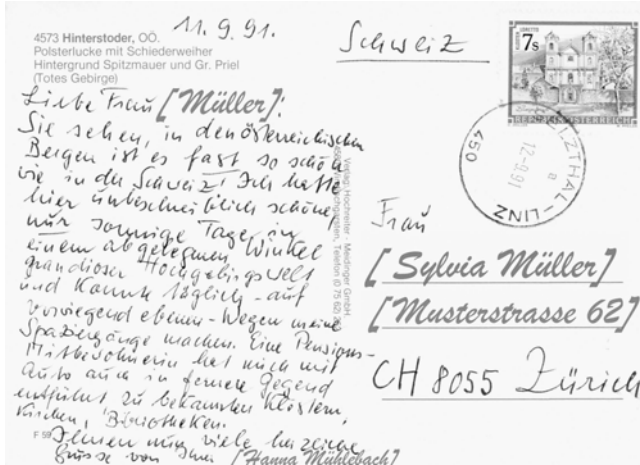 4573 Hinterstoder, OÖ.
Polsterlucke mit Schiederweiher
Hintergrund Spitzmauer und Gr. Priel
(Totes Gebirge)
11. 9. 91.
Liebe Frau [Müller]:
Sie sehen, in den österreichischen
Bergen ist es fast so schön
wie in der Schweiz! Ich hatte
hier unbeschreiblich schöne,
nur sonnige Tage in
einem abgelegenen Winkel
grandioser Hochgebirgswelt
und konnte täglich - auf
vorwiegend ebenen - Wegen meine
Spaziergänge machen. Eine Pensions-
Mitbewohnerin hat mich mit
Auto auch in fernere Gegend
entführt zu bekannten Klöstern,
Kirchen, Bibliotheken.
Ihnen nun viele herzliche
Grüsse von Ihrer [Hanna Mühlebach]
F 59
Verlag: Hochreiter - Meidinger GmbH
Telefon (0 75 62)
Schweiz
KLOSTER LORETTO
7s
REPUBLIK ÖSTERREICH
ZTHAL-LINZ
12-9.91
a
450
Frau
[Sylvia Müller]
[Musterstrasse 62]
CH 8055 Zürich